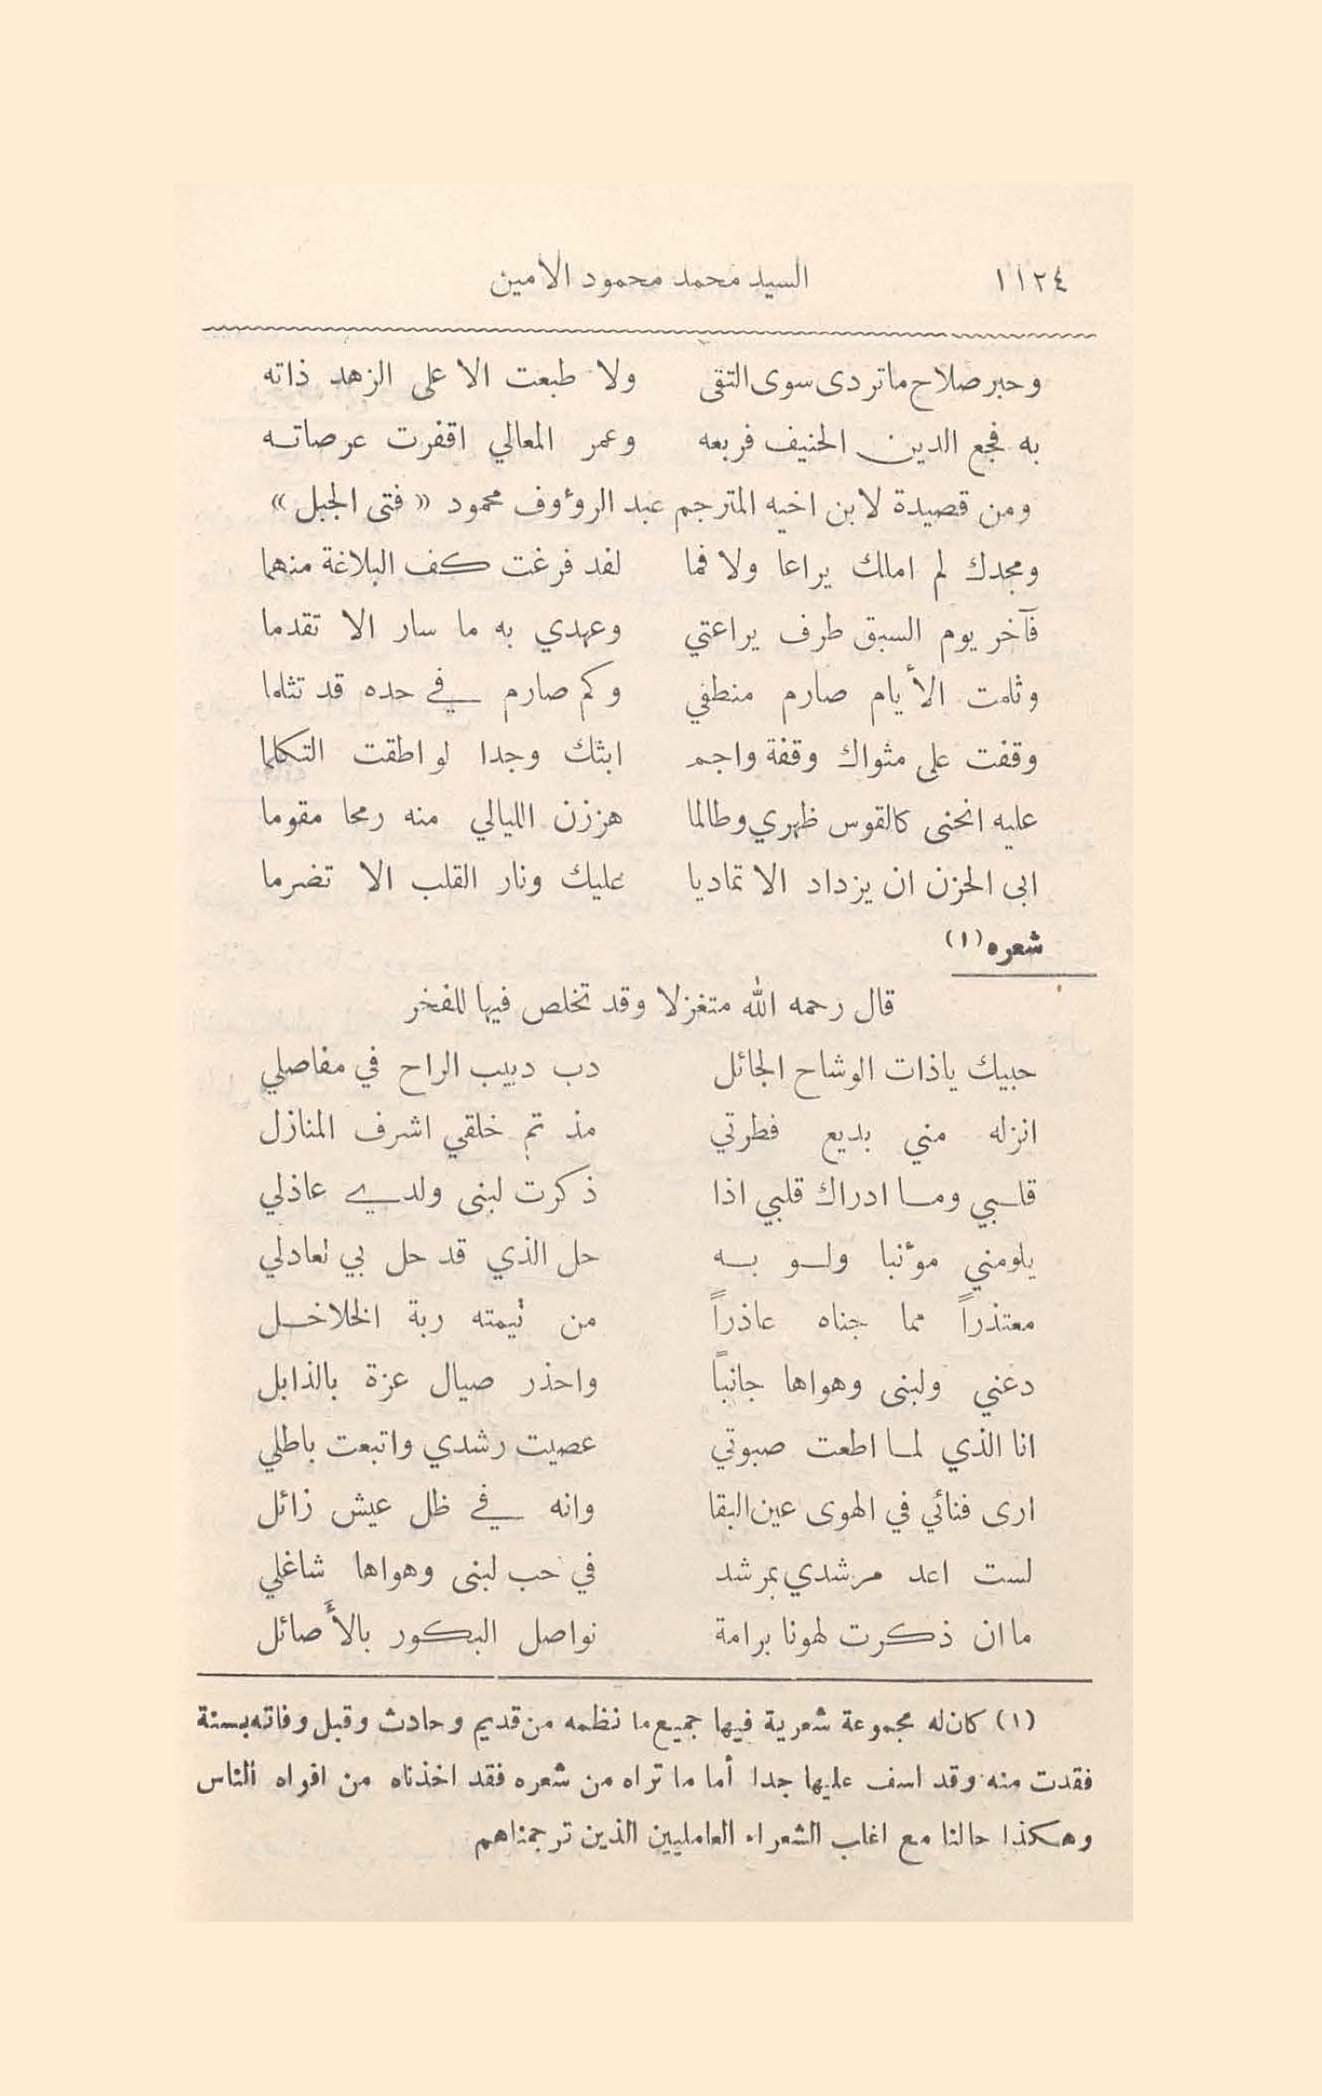 ١١٢٤ السيد محمد محمود الامين
وحبر صلاح ما تردى سوى التقى ولا طبعت الا على الزهد ذاته
به فجع الدين الحنيف فربعه وعمر المعالي اقفرت عرصاته
ومن قصيدة لابن اخيه المترجم عبد الرؤوف محمود « فتى الجبل »
ومجدك لم املك يراعا ولا فما لقد فرغت كف البلاغة منهما
فآخر يوم السبق طرف يراعتي وعهدي به ما سار الا تقدما
وثلمت الأيام صارم منطقي وكم صارم في حده قد تثلما
وقفت على مثواك وقفة واجم ابثك وجدا لو اطقت التكلما
عليه انحنى كالقوس ظهري وطالما هززن الليالي منه رمحا مقوما
ابى الحزن ان يزداد الا تماديا عليك ونار القلب الا تضرما
شعره (١)
قال رحمه الله متغزلا وقد تخلص فيها للفخر
حبيك ياذات الوشاح الجائل دب دبيب الراح في مفاصلي
انزله مني بديع فطرتي مذ تم خلقي اشرف المنازل
قلبي وما ادراك قلبي اذا ذكرت لبنى ولدي عاذلي
يلومني مؤنبا ولو به حل الذي قد حل بي تعادلي
معتذراً مما جناه عاذراً من تيمته ربة الخلاخل
دعني ولبنى وهواها جانباً واحذر صيال عزة بالذابل
انا الذي لما اطعت صبوتي عصيت رشدي واتبعت باطلي
ارى فنائي في الهوى عين البقا وانه في ظل عيش زائل
لست اعد مرشدي بمرشد في حب لبنى وهواها شاغلي
ما ان ذكرت لهونا برامة نواصل البكور بالأصائل
(١) كان له مجموعة شعرية فيها جميع ما نظمه من قديم وحادث وقبل وفاته بسنة
فقدت منه وقد اسف عليها جدا أما ما تراه من شعره فقد اخذناه من افواه الناس
وهكذا حالنا مع اغلب الشعراء العامليين الذين ترجمناهم